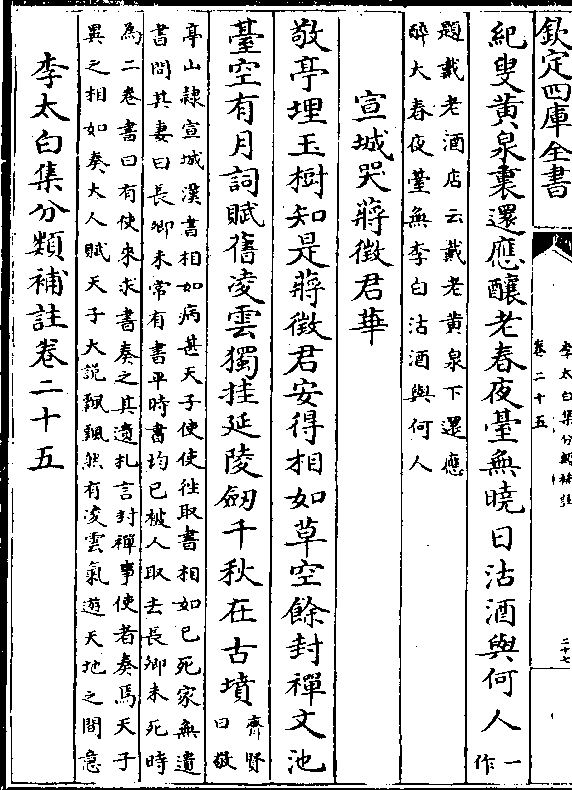 欽定四庫全書
李太白集分類補註
卷二十五
二十七
紀叟黃泉裏還應釀老春夜臺無曉日沽酒與何人一
作
題戴老酒店云戴老黃泉下還應
醉大春夜臺無李白沽酒與何人
宣城哭蔣徵君華
敬亭埋玉樹知是蔣徵君安得相如草空餘封禪文池
臺空有月詞賦舊凌雲獨挂延陵劒千秋在古墳齊賢
曰敬
亭山隸宣城漢書相如病甚天子使使徃取書相如已死家無遺
書問其妻曰長卿未常有書平時書均已被人取去長卿未死時
為二卷書曰有使來求書奏之其遺札言封禪事使者奏焉天子
異之相如奏大人賦天子大説飄飄然有凌雲氣遊天地之間意
李太白集分類補註卷二十五